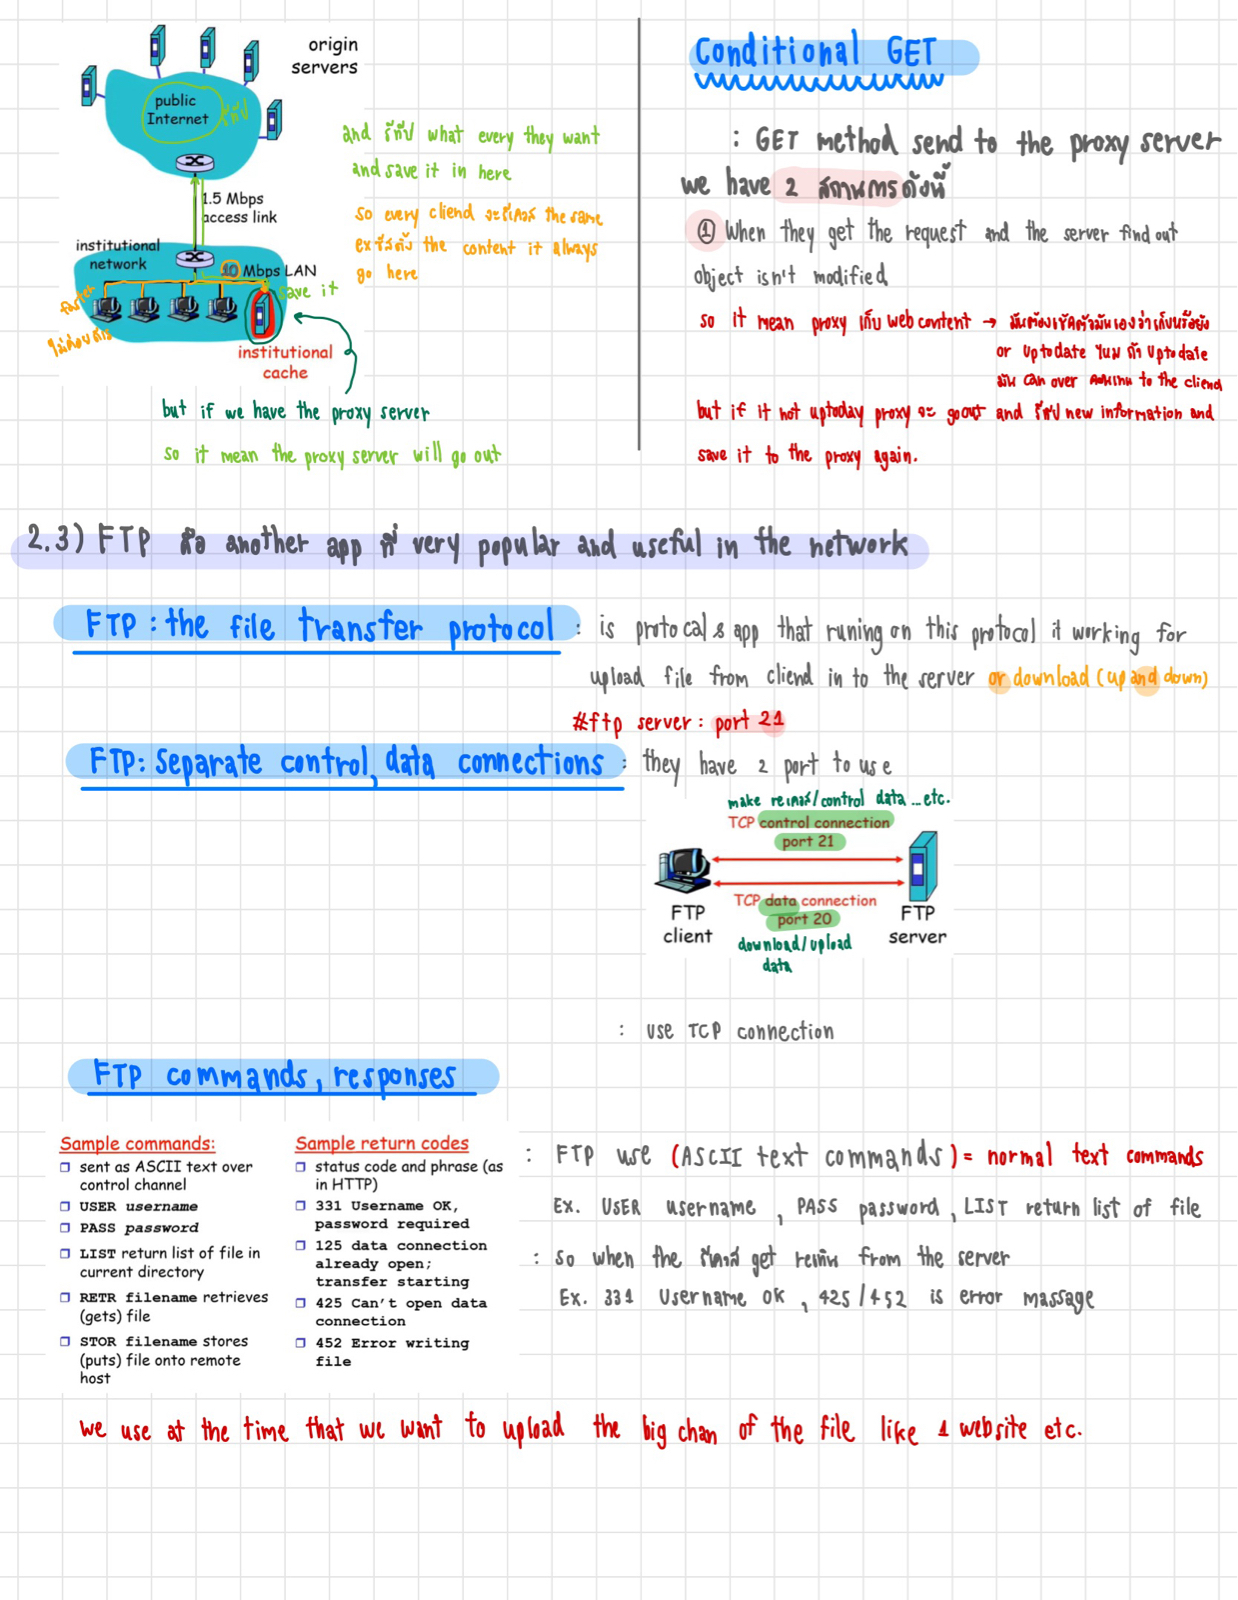 origin
servers
public
Internet
1.5 Mbps
access link
institutional
network
10 Mbps LAN
save it
faster
institutional
cache
and what every they want
and save it in here
so every cliend the same
ex the content it always
go here
but if we have the proxy server
so it mean the proxy server will go out
Conditional GET
: GET method send to the proxy server
we have 2 สถานการดังนี้
① When they get the request and the server find out
object isn't modified
so it mean proxy เก็บ web content → มันต้องเช็คตัวมันเองว่าเก็บหรือยัง
or uptodate ไหม ถ้า uptodate
มัน can over to the cliend
but if it not uptoday proxy จะ go out and new information and
save it to the proxy again.
2.3) FTP คือ another app ที่ very popular and useful in the network
FTP : the file transfer protocol : is protocal & app that runing on this protocol it working for
upload file from cliend in to the server or download (up and down)
#ftp server: port 21
FTP: Separate control, data connections : they have 2 port to use
make /control data ...etc.
TCP control connection
port 21
TCP data connection
port 20
FTP
client
FTP
server
download/upload
data
: use TCP connection
FTP commands, responses
Sample commands:
❒ sent as ASCII text over
control channel
❒ USER username
❒ PASS password
❒ LIST return list of file in
current directory
❒ RETR filename retrieves
(gets) file
❒ STOR filename stores
(puts) file onto remote
host
Sample return codes
❒ status code and phrase (as
in HTTP)
❒ 331 Username OK,
password required
❒ 125 data connection
already open;
transfer starting
❒ 425 Can't open data
connection
❒ 452 Error writing
file
: FTP use (ASCII text commands) = normal text commands
Ex. USER username , PASS password, LIST return list of file
: so when the get from the server
Ex. 331 Username ok , 425/452 is error massage
we use at the time that we want to upload the big chan of the file like 1 website etc.